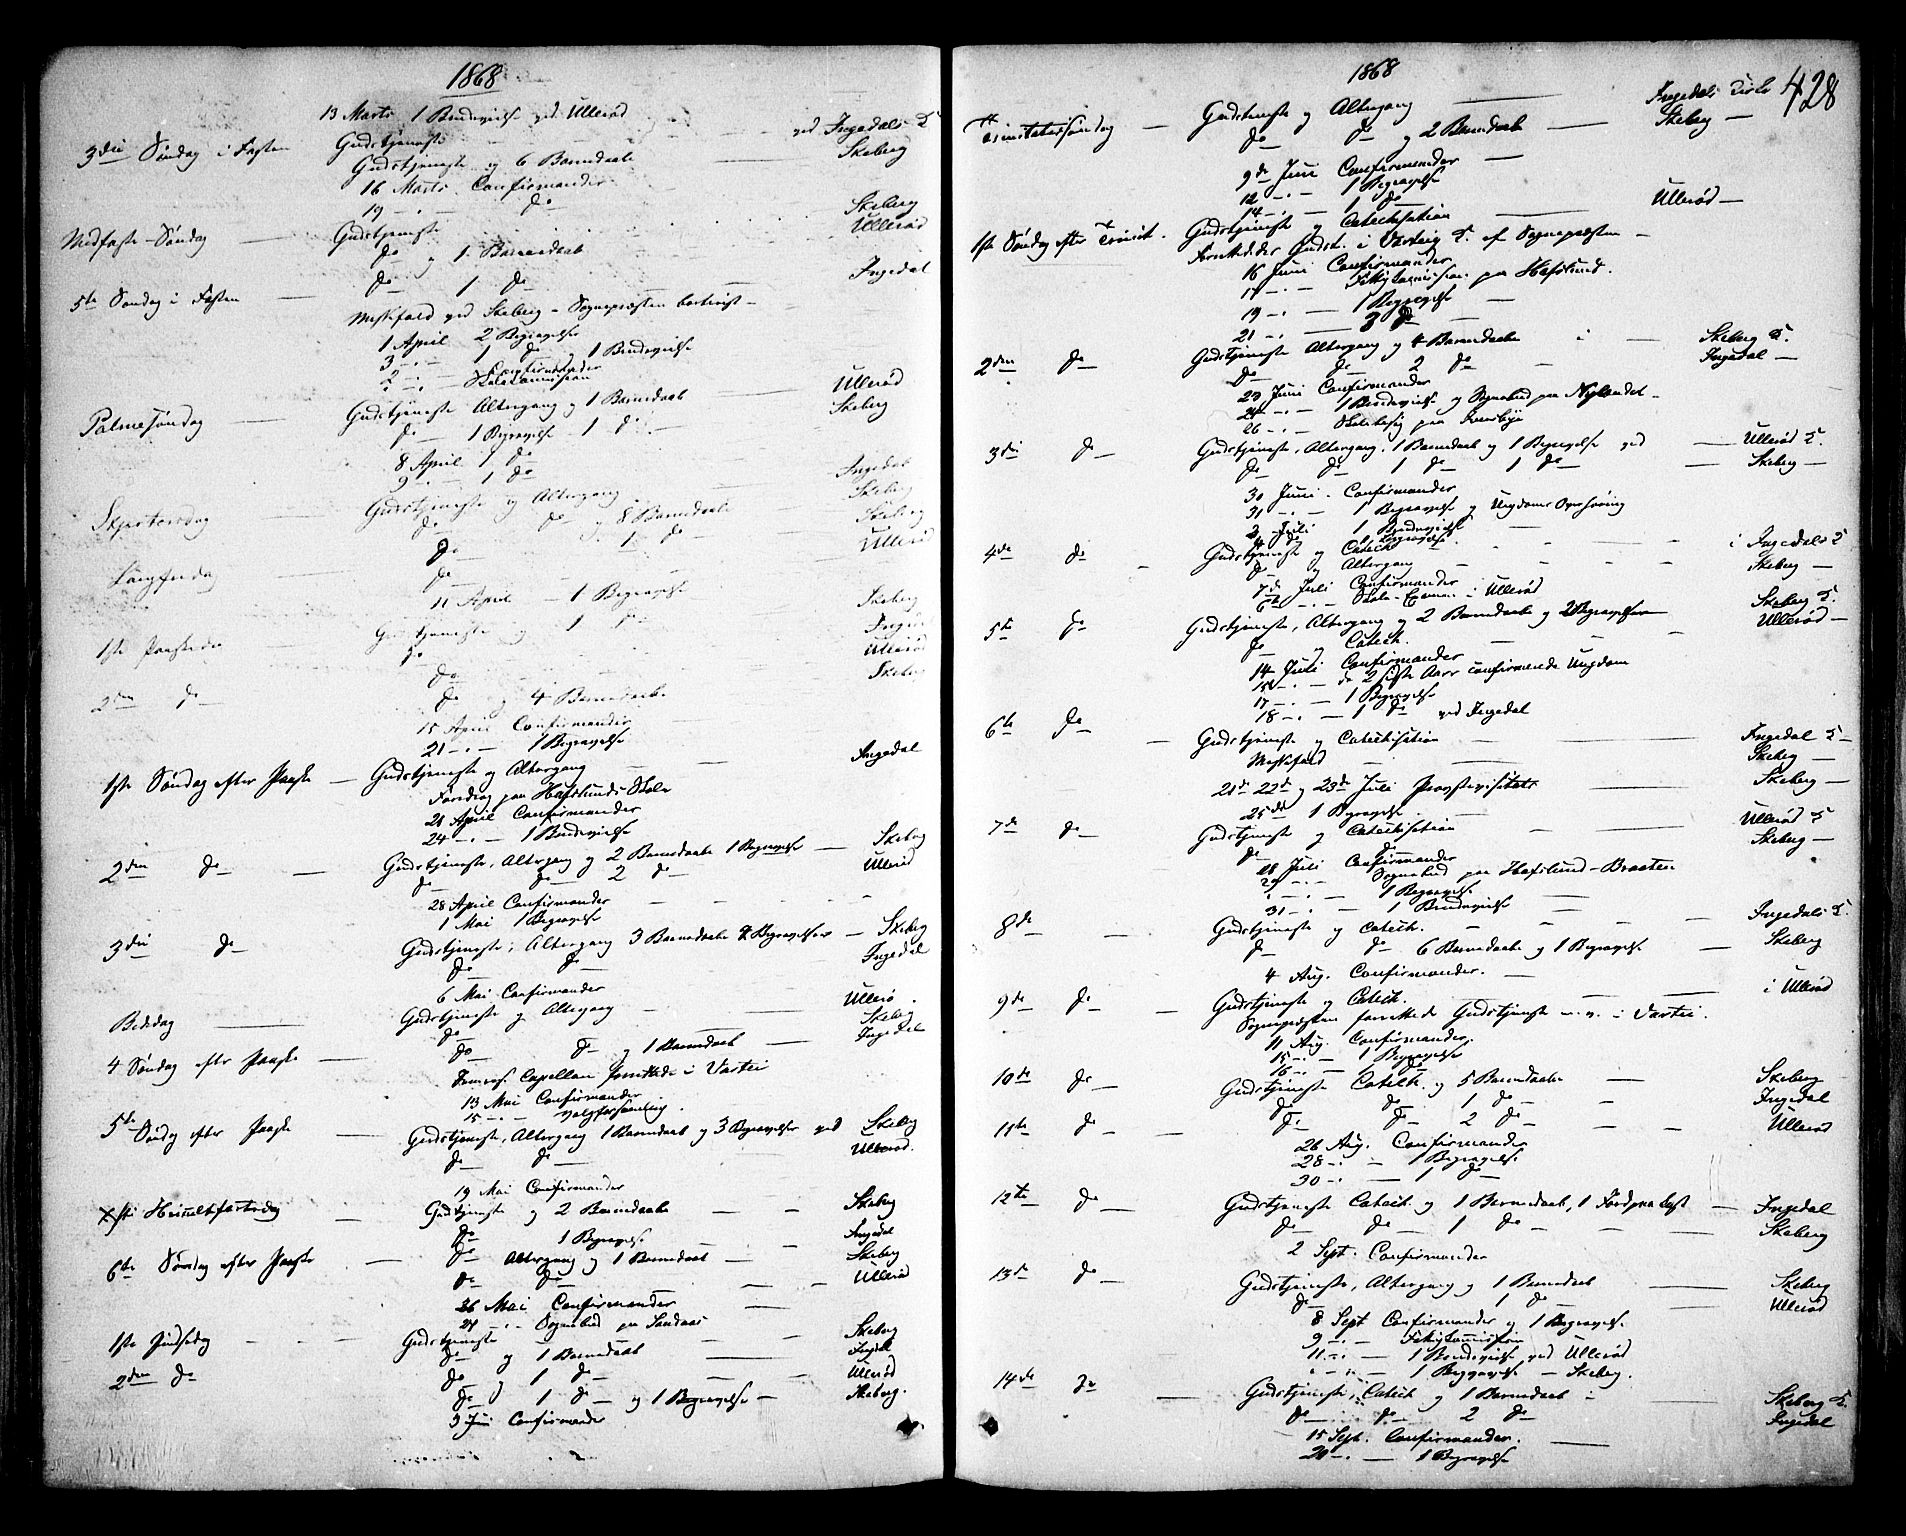 1868
13 Marts 1 Brudevielse ved Ullerød
3die Søndag i Fasten Gudstjeneste ved Ingedals K
Gudstjeneste og 6 Barnedaab Skeberg
16 Marts Confirmander
19 -"- do
Midfaste-Søndag Gudstjeneste Skeberg
do og 1 Barnedaab Ullerød
5te Søndag i Fasten do 1 do Ingedal
Messefald ved Skeberg - Sognepræsten bortreist -
1 April 2 Begravelse
3 -"- 1 do 1 Brudevielse
2 -"- Confirmander
-"- Skolecommission
Palmesøndag Gudstjeneste Altergang og 1 Barnedaab Ullerød
do 1 Begravelse 1 do Skeberg
8 April 1 do
9 -"- 1 do
Skjertorsdag Gudstjeneste og Altergang Ingedal
do do og 8 Barnedaab Skeberg
Langfredag do 1 do Skeberg
do Ullerød
11 April - 1 Begravelse
1ste Paaskedag Gudstjeneste og 1 do Skeberg
do Ingedal
2den do do Ullerød
do og 4 Barnedaab Skeberg
15 April Confirmander
21 -"- 1 Begravelse
1ste Søndag efter Paaske - Gudstjeneste og Altergang Ingedal
Foredrag paa Hafslunds Skole
21 April Confirmander
24 -"- 1 Brudevielse
2den do - Gudstjeneste, Altergang og 2 Barnedaab 1 Begravelse - Skeberg
do do 2 do Ullerød
28 April Confirmander
1 Mai 1 Begravelse
3die do Gudstjeneste, Altergang 3 Barnedaab 2 Begravelser - Skeberg
do do Ingedal
6 Mai Confirmander
Bededag Gudstjeneste og Altergang Ullerø
do Skeberg
4 Søndag efter Paaske do do og 1 Barnedaab Ingedal
Capellan forrettede i Vartei
13 Mai Confirmander
15 -"- Valgforsamling
5te Søndag efter Paaske Gudstjeneste, Altergang 1 Barnedaab og 3 Begravelser ved Skeberg
do do Ullerød.
19 Mai Confirmander
Christi Himmelfartsdag Gudstjeneste og 2 Barnedaab Skeberg
do 1 Begravelse Ingedal
6te Søndag efter Paaske do Altergang og 1 Barnedaab Skeberg
do do Ullerød
26 Mai Confirmander
-"- Sognebud paa Sandaas
1ste Pindsedag Gudstjeneste Skeberg
do og 1 Barnedaab Ingedal
2den do do og 1 do Ullerød
do 1 do og 1 Begravelse - Skeberg.
3 Juni Confirmander
1868
428
Trinitatissøndag - Gudstjeneste og Altergang Ingedals Kirke
do do og 2 Barnedaab Skeberg -
9de Juni Confirmander
12 -"- 1 Begravelse
14 -"- 1 do
1ste Søndag efter Trinit. Gudstjeneste og Catechisation Ullerød -
Forrettedes Gudst. i Varteig K. af Sognepræsten
16 Juni Confirmander
17 -"- Fattigcommission paa Hafslund.
19 -"- 1 Begravelse
21 -"- 3 do
2den do Gudstjeneste Altergang og 4 Barnedaab i - Skeberg K.
do do 2 do Ingedal -
23 Juni Confirmander
24 -"- 1 Brudevielse og Sognebud paa Nylandet -
26 -"- Skolebesøg paa
3die do Gudstjeneste, Altergang, 1 Barnedaab og 1 Begravelse ved Ullerød K.
do do 1 do 1 do Skeberg -
30 Juni Confirmander
31 -"- 1 Begravelse og Ungdoms Overhøring
3 Juli 1 Brudevielse
4 do 1 Begravelse
4de do - Gudstjeneste og Catech i Ingedals K
do og Altergang Skeberg -
7de Juli Confirmander
-"- Skole-Examen i Ullerød
5te do Gudstjeneste, Altergang og 2 Barnedaab og 2 Begravelser Skeberg K.
do og Catech. Ullerød -
14 Juli Confirmander
15 -"- de 2 sidste Aars confirmerede Ungdom
17 -"- 1 Begravelse
18 -"- 1 do ved Ingedal
6te do - Gudstjeneste og Catechisation Ingedal K -
Messefald Skeberg -
21de 22de og 23de Juli Provstevisitats Skeberg -
25de 1 Begravelse
7de do Gudstjeneste og Catechisation Ullerød K
do do Skeberg -
28 Juli Confirmander
29 -"- Sognebud paa Hafslund-Braaten
-"- 1 Begravelse
31 -"- 1 Brudevielse
8de do Gudstjeneste og Catech. Ingedals K.
do do 6 Barnedaab og 1 Begravelse Skeberg
4 Aug. Confirmander.
9de do Gudstjeneste og Catech. i Ullerød
Sognepræsten forrettede Gudstjeneste m.v. i Vartei.
11 Aug. Confirmander.
15 -"- 1 Begravelse
16 -"- do
10de do Gudstjeneste Catech. og 5 Barnedaab Skeberg
do do 1 do Ingedal
11te do do do 2 do Ullerød
26 Aug. Confirmander
28 -"- 1 Begravelse
30 -"- 1 do
12te do Gudstjeneste Catech. og 1 Barnedaab, 1 Jordpaakast Ingedal
do do 1 do Skeberg
2 Sept. Confirmander
13de do Gudstjeneste, Altergang og 1 Barnedaab Skeberg
do 1 do Ullerød
8 Sept Confirmander og 1 Begravelse
9 -"- Fattigcommission
11 -"- 1 Brudevielse ved Ullerød
-"- 1 Begravelse - Skeberg.
14de do - Gudstjeneste, Catech og 1 Barnedaab i Skeberg K.
do do 2 do Ingedal
15 Sept. Confirmander.
20 -"- 1 Begravelse